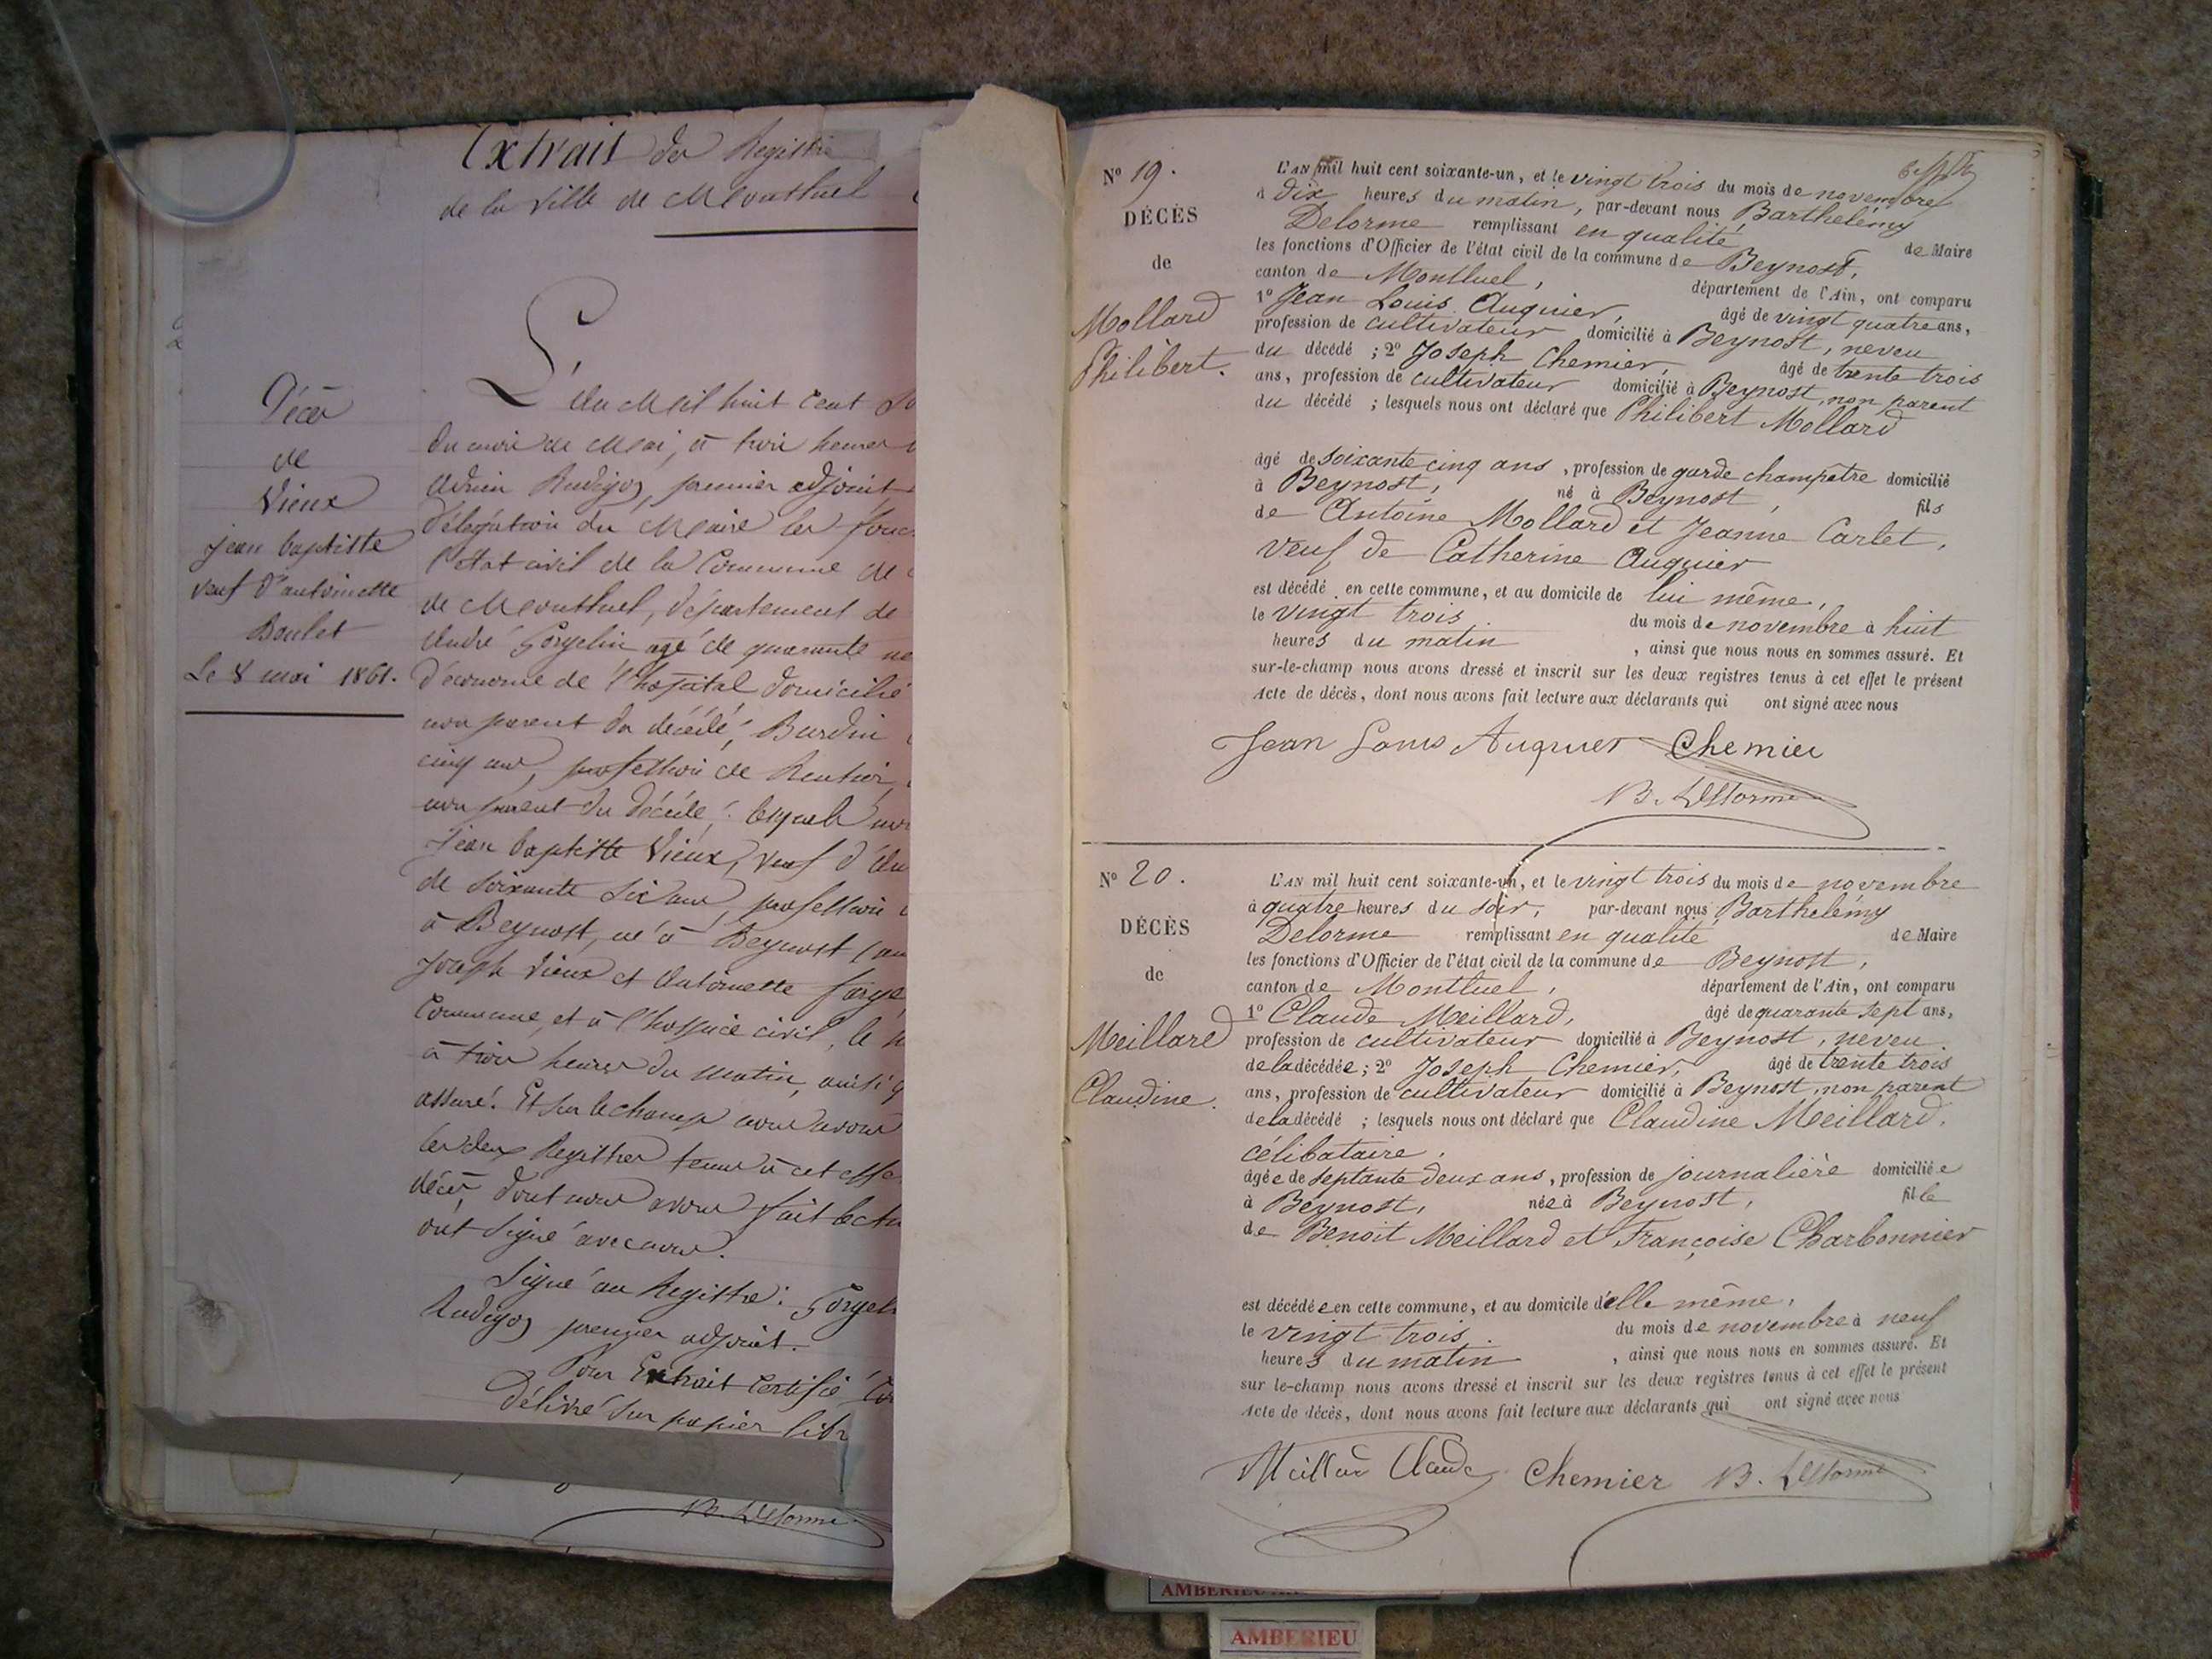 Extrait du Registre
de la ville de Montluel
Décès
de
Vieux
Jean baptiste
veuf d'antoinette
Boulet
Le 8 mai 1861.
L'An Mil huit Cent
du mois de Mai, à trois heures
premier adjoint
délégation du Maire les
l'état civil de la Commune de
de Montluel, département de
André agé de quarante
d'économe de l'hopital, domicilié
non parent du décédé; Burdin
cinq ans, profession de Rentier,
non parent du décédé; lesquels
Jean baptiste Vieux, veuf d'
de soixante six ans, profession
à Beynost, né à Beynost
Joseph Vieux et Antoinette
Commune, et à l'hospice civil, le
à trois heures du matin, ainsi
assuré. Et sur le champ nous avons
les deux Registres tenus à cet
décès, dont nous avons fait
ont signé avec nous.
Signé au Registre:
premier adjoint.
Pour Extrait Certifié
Délivré sur papier
B. Delorme
N° 19.
DÉCÈS
de
Mollard
Philibert.
L'AN mil huit cent soixante-un, et le vingt trois du mois de novembre
à dix heures du matin, par-devant nous Barthelémy
Delorme remplissant en qualité de Maire
les fonctions d'Officier de l'état civil de la commune de Beynost,
canton de Montluel, département de l'Ain, ont comparu
1° Jean Louis Auguier, âgé de vingt quatre ans,
profession de cultivateur domicilié à Beynost, neveu
du décédé ; 2° Joseph Chemier, âgé de trente trois
ans, profession de cultivateur domicilié à Beynost, non parent
du décédé ; lesquels nous ont déclaré que Philibert Mollard
âgé de soixante cinq ans, profession de garde champêtre domicilié
à Beynost, né à Beynost, fils
de Antoine Mollard et Jeanne Carlet,
veuf de Catherine Auguier
est décédé en cette commune, et au domicile de lui même,
le vingt trois du mois de novembre à huit
heures du matin , ainsi que nous nous en sommes assuré. Et
sur-le-champ nous avons dressé et inscrit sur les deux registres tenus à cet effet le présent
Acte de décès, dont nous avons fait lecture aux déclarants qui ont signé avec nous
Jean Louis Auguier Chemier
B. Delorme
N° 20.
DÉCÈS
de
Meillard
Claudine.
L'AN mil huit cent soixante-un, et le vingt trois du mois de novembre
à quatre heures du soir, par-devant nous Barthelémy
Delorme remplissant en qualité de Maire
les fonctions d'Officier de l'état civil de la commune de Beynost,
canton de Montluel, département de l'Ain, ont comparu
1° Claude Meillard, âgé de quarante sept ans,
profession de cultivateur domicilié à Beynost, neveu
de la décédée ; 2° Joseph Chemier, âgé de trente trois
ans, profession de cultivateur domicilié à Beynost, non parent
de la décédé ; lesquels nous ont déclaré que Claudine Meillard,
célibataire,
âgée de septante deux ans, profession de journalière domiciliée
à Beynost, née à Beynost, fille
de Benoit Meillard et Françoise Charbonnier
est décédée en cette commune, et au domicile d'elle même,
le vingt trois. du mois de novembre à neuf
heures du matin , ainsi que nous nous en sommes assuré. Et
sur le-champ nous avons dressé et inscrit sur les deux registres tenus à cet effet le présent
Acte de décès, dont nous avons fait lecture aux déclarants qui ont signé avec nous
Meillard Claude Chemier B. Delorme
AMBERIEU
AMBERIEU